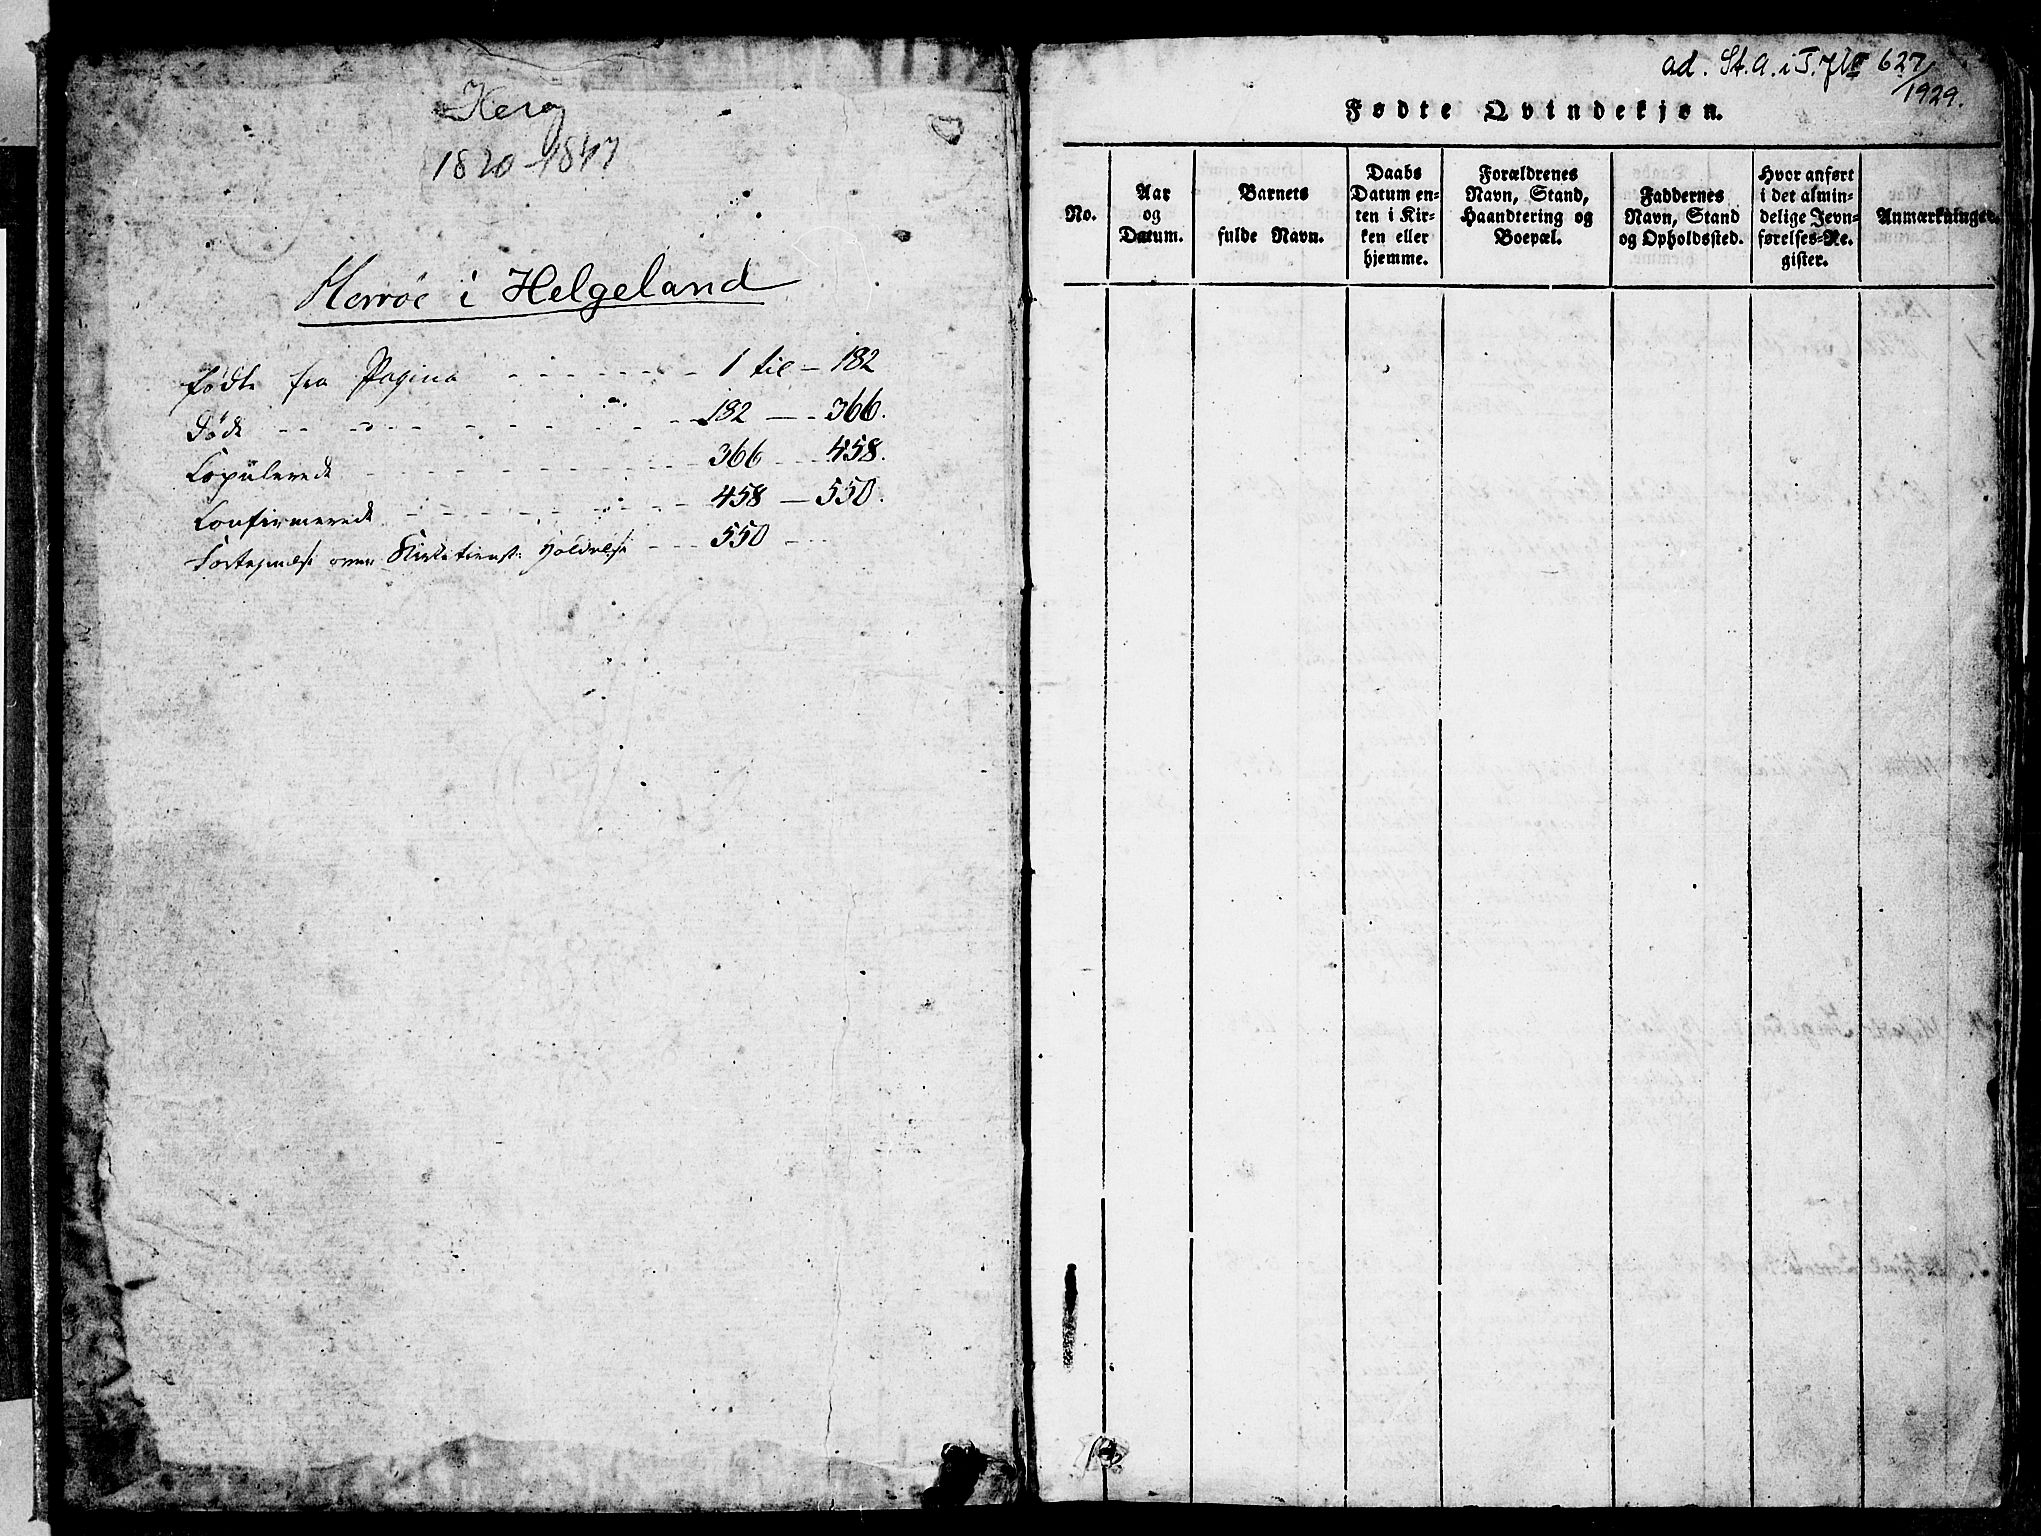 Herøy
1820-1847
Herrøe i Helgeland
Fødte fra Pagina - - - - - - - 1 til - 182
Døde - - - - - - - - - - 182 - - 366.
Copulerede - - - - - - - - 366 - - 458.
Confirmerede - - - - - - - 458 - 550.
Fortegnelse over Kirketienst: Holdelse - - - 550 - - -
ad. St. a. i T. No 627/1929.
Fødte Qvindekjøn.
No.
Aar
og
Datum.
Barnets
fulde Navn.
Daabs
Datum en-
ten i Kir-
ken eller
hjemme.
Forældrenes
Navn, Stand,
Haandtering og
Boepæl.
Faddernes
Navn, Stand
og Opholdssted.
Hvor anført
i det almin-
delige Jevn-
førelses-Re-
gister.
Anmærkninger.